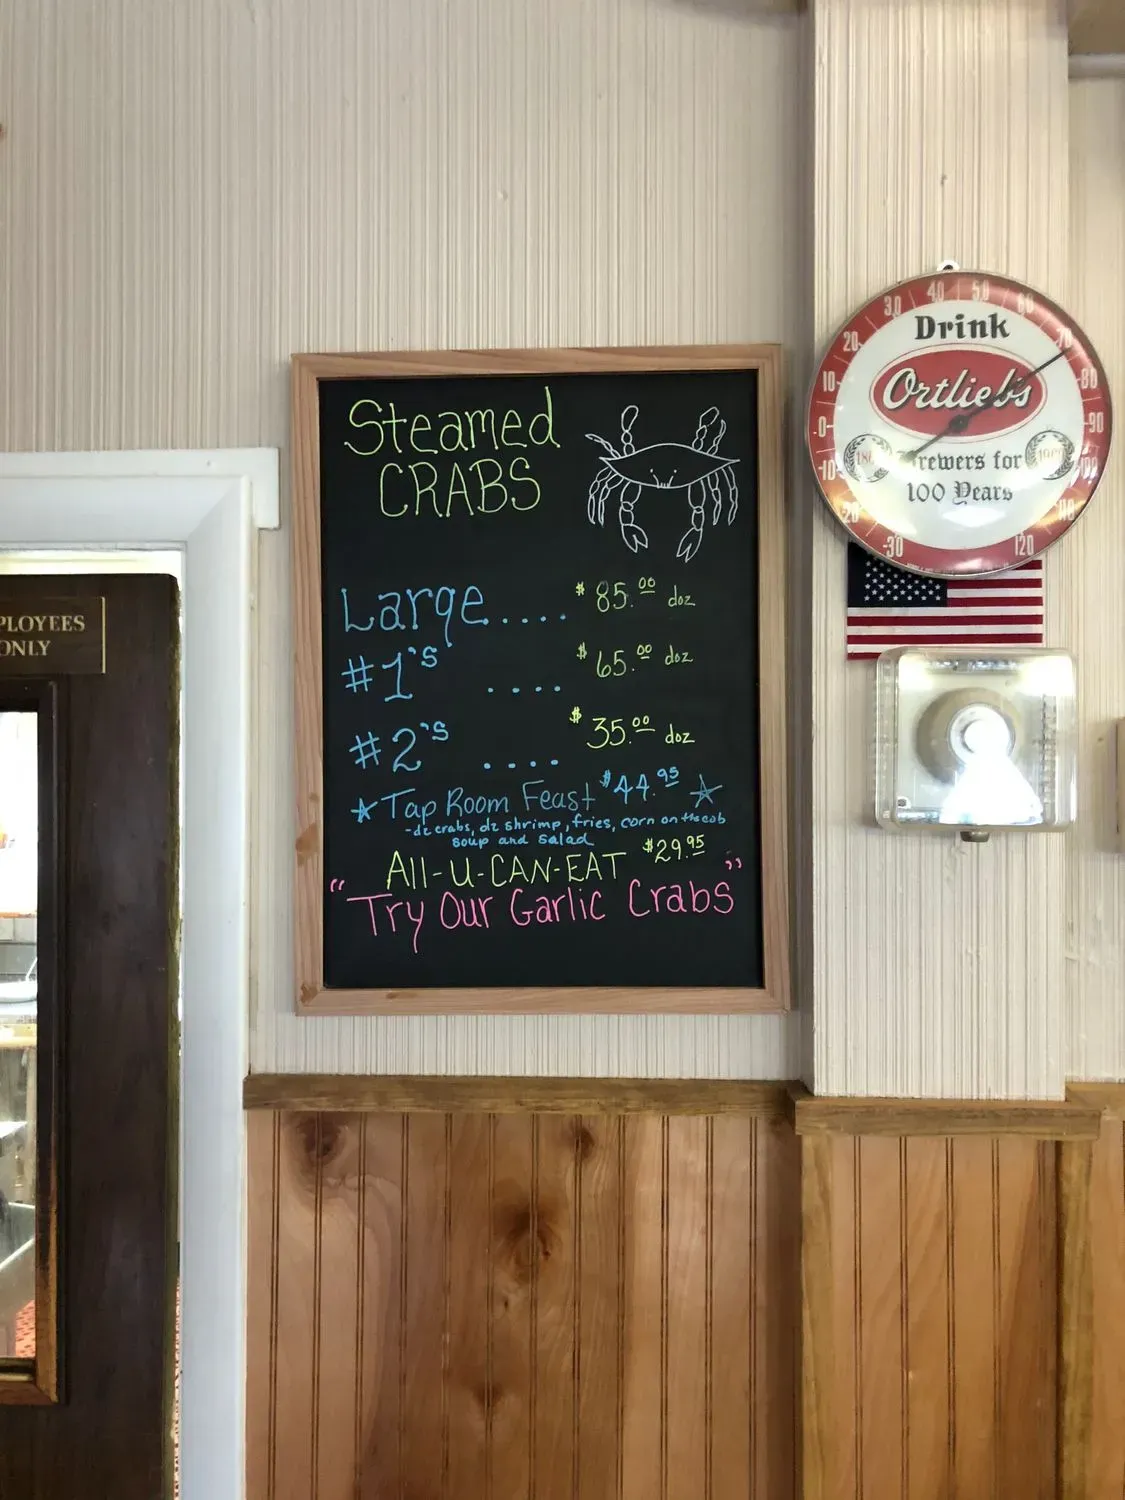 Steamed
CRABS
Large.... $85.00 doz
#1's .... $65.00 doz
#2's .... $35.00 doz
☆Tap Room Feast $44.95 ☆
-dz crabs, dz shrimp, fries, corn on the cob
soup and salad
All-U-CAN-EAT $29.95
"Try Our Garlic Crabs"
PLOYEES
ONLY
Drink
Ortlieb's
Brewers for
100 Years
-30 -20 -10 -0- 10 20 30 40 50 60 70 80 90 100 110 120